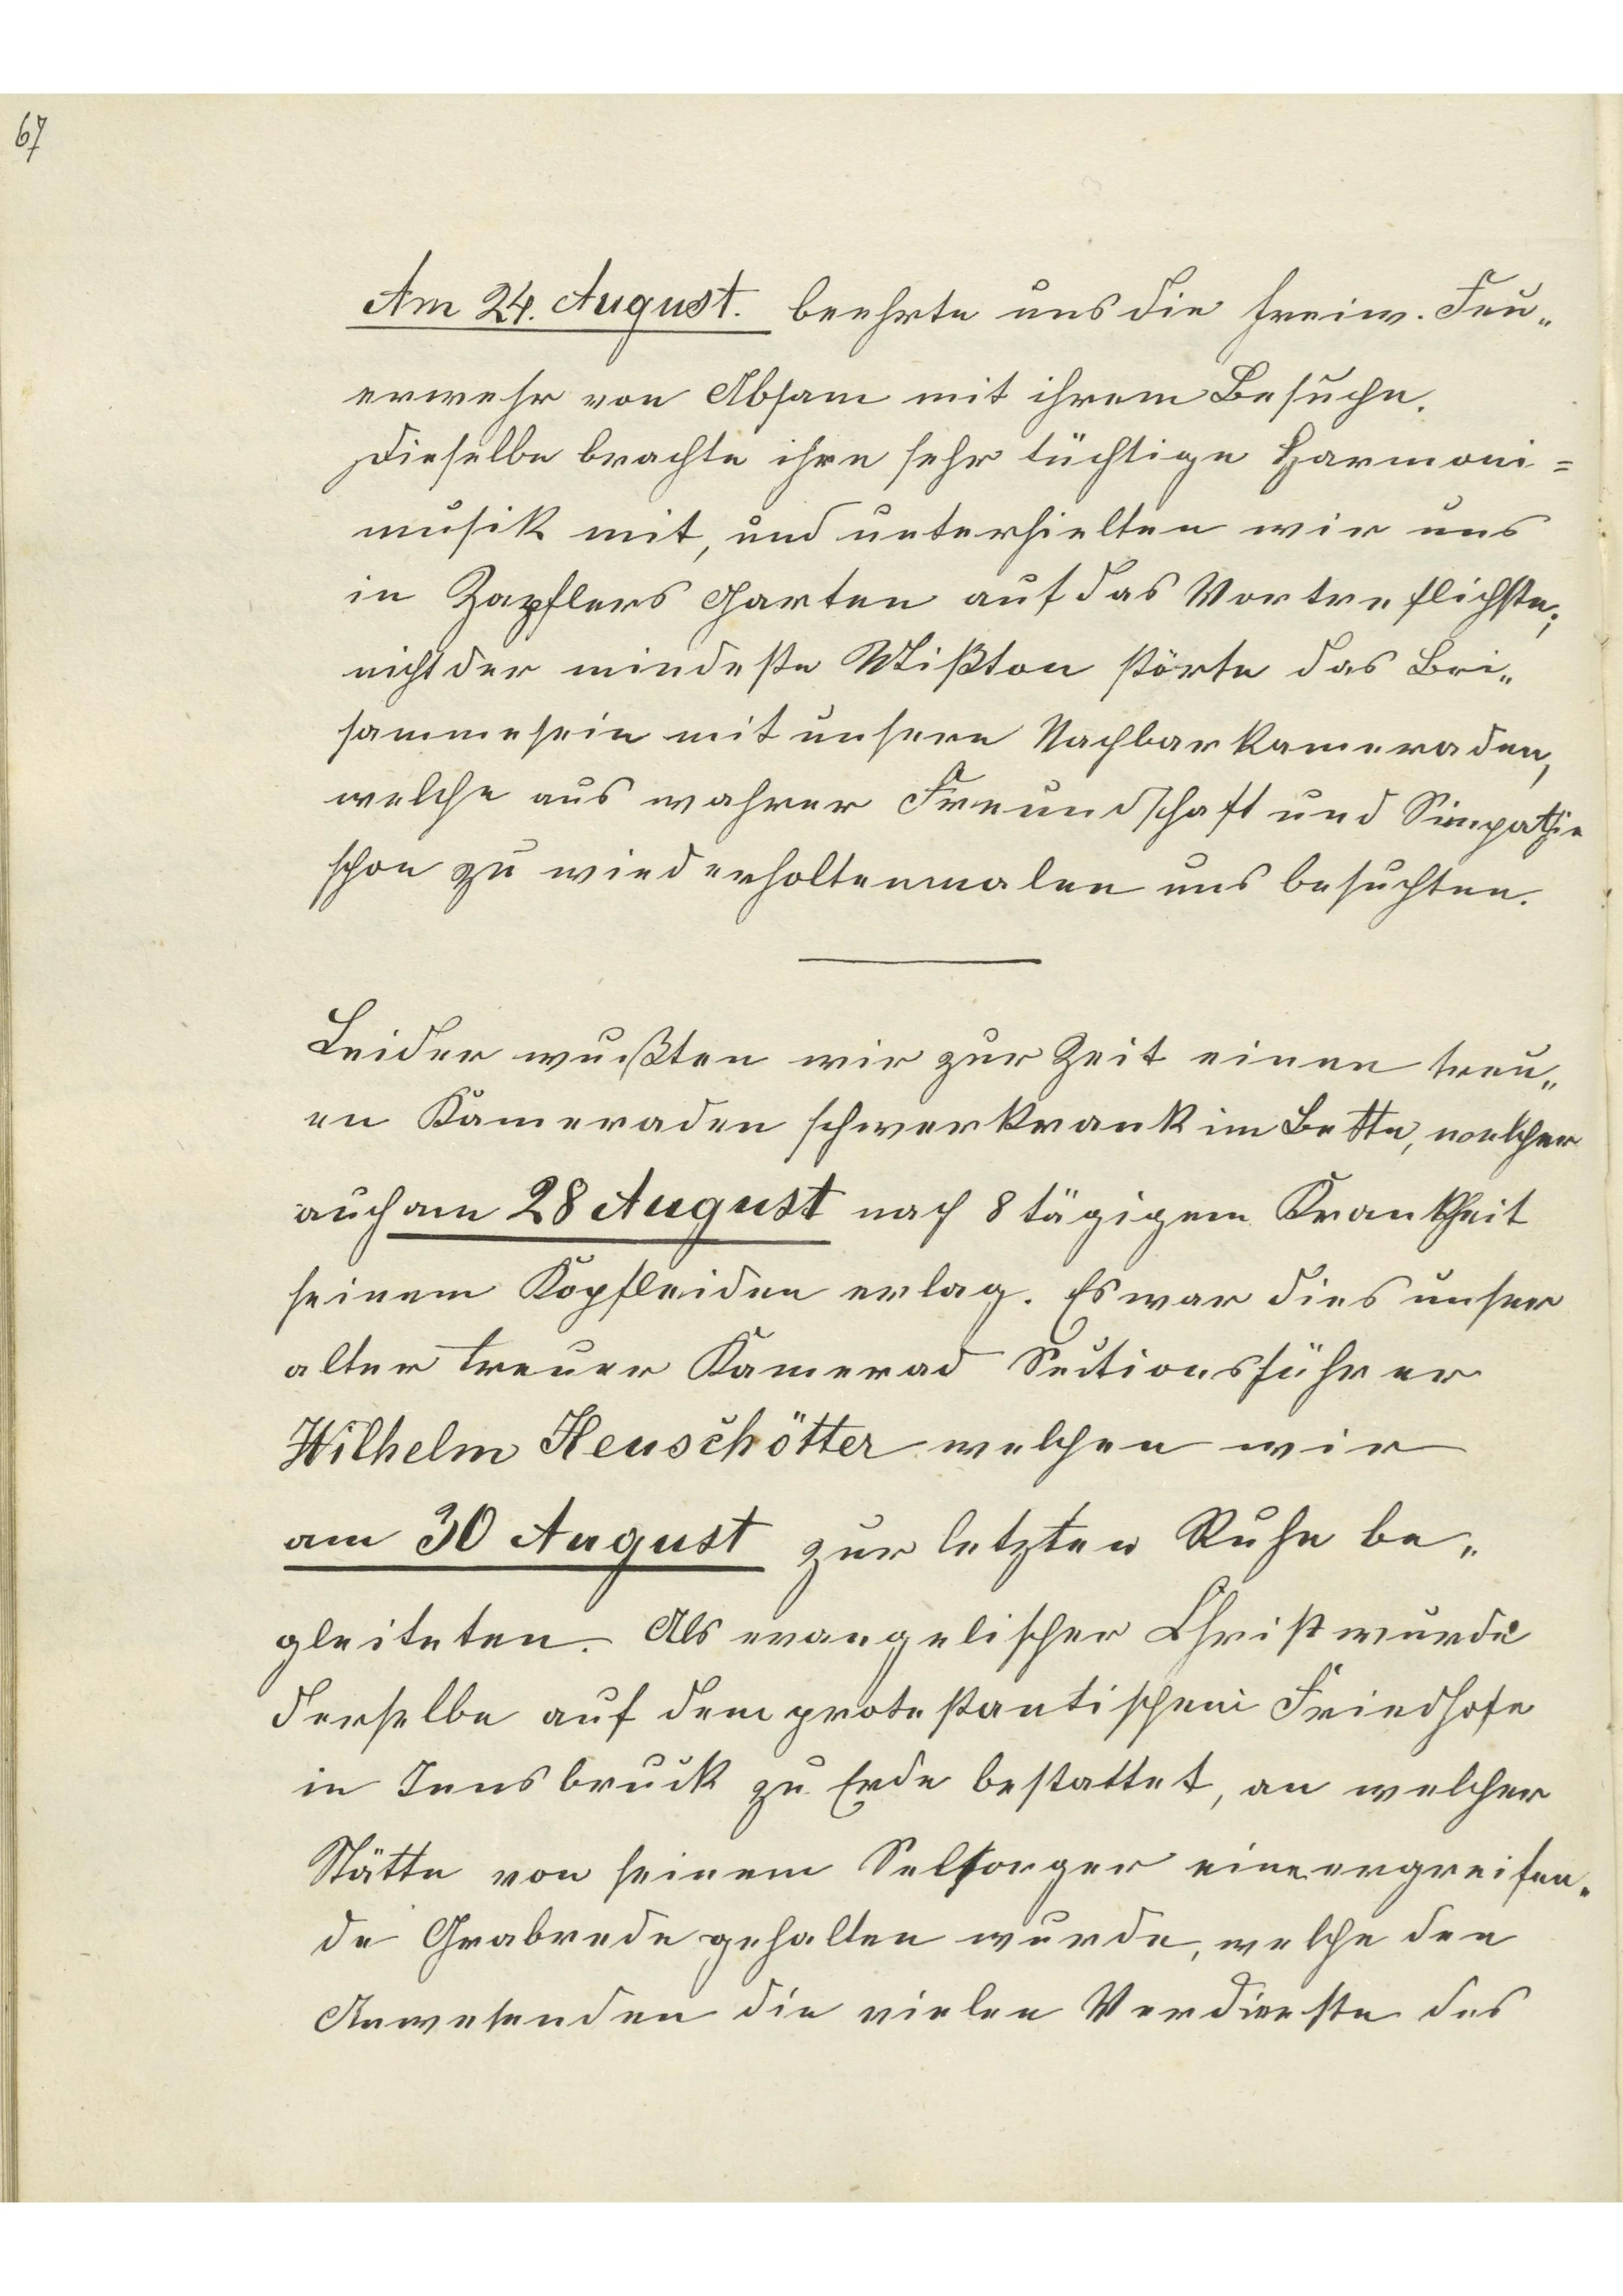 67
Am 24. August. beehrte uns die freiw. Feu„
erwehr von Absam mit ihrem Besuche.
Dieselbe brachte ihre sehr tüchtige Harmoni=
musik mit, und unterhielten wir uns
in Zapflers Garten auf das Vortreflichste;
nicht der mindeste Mißton störte das Bei„
sammesein mit unsern Nachbarkameraden,
welche aus wahrer Freundschaft und Simpathie
schon zu wiederholtenmalen uns besuchten.
Leider wußten wir zur Zeit einen treu„
en Kameraden schwerkrank im Bette, welcher
auch am 28 August nach 8 tägigem Krankheit
seinem Kopfleiden erlag. Es war dies unser
alter treuer Kamerad Sectionsführer
Wilhelm Keuschötter welchen wir
am 30 August zur letzten Ruhe be„
gleiteten. Als evangelischer Christ wurde
derselbe auf dem protestantischem Friedhofe
in Innsbruck zu Erde bestattet, an welcher
Stätte von seinem Selsorger eine ergreifen„
de Grabrede gehalten wurde, welche den
Anwesenden die vielen Verdienste des